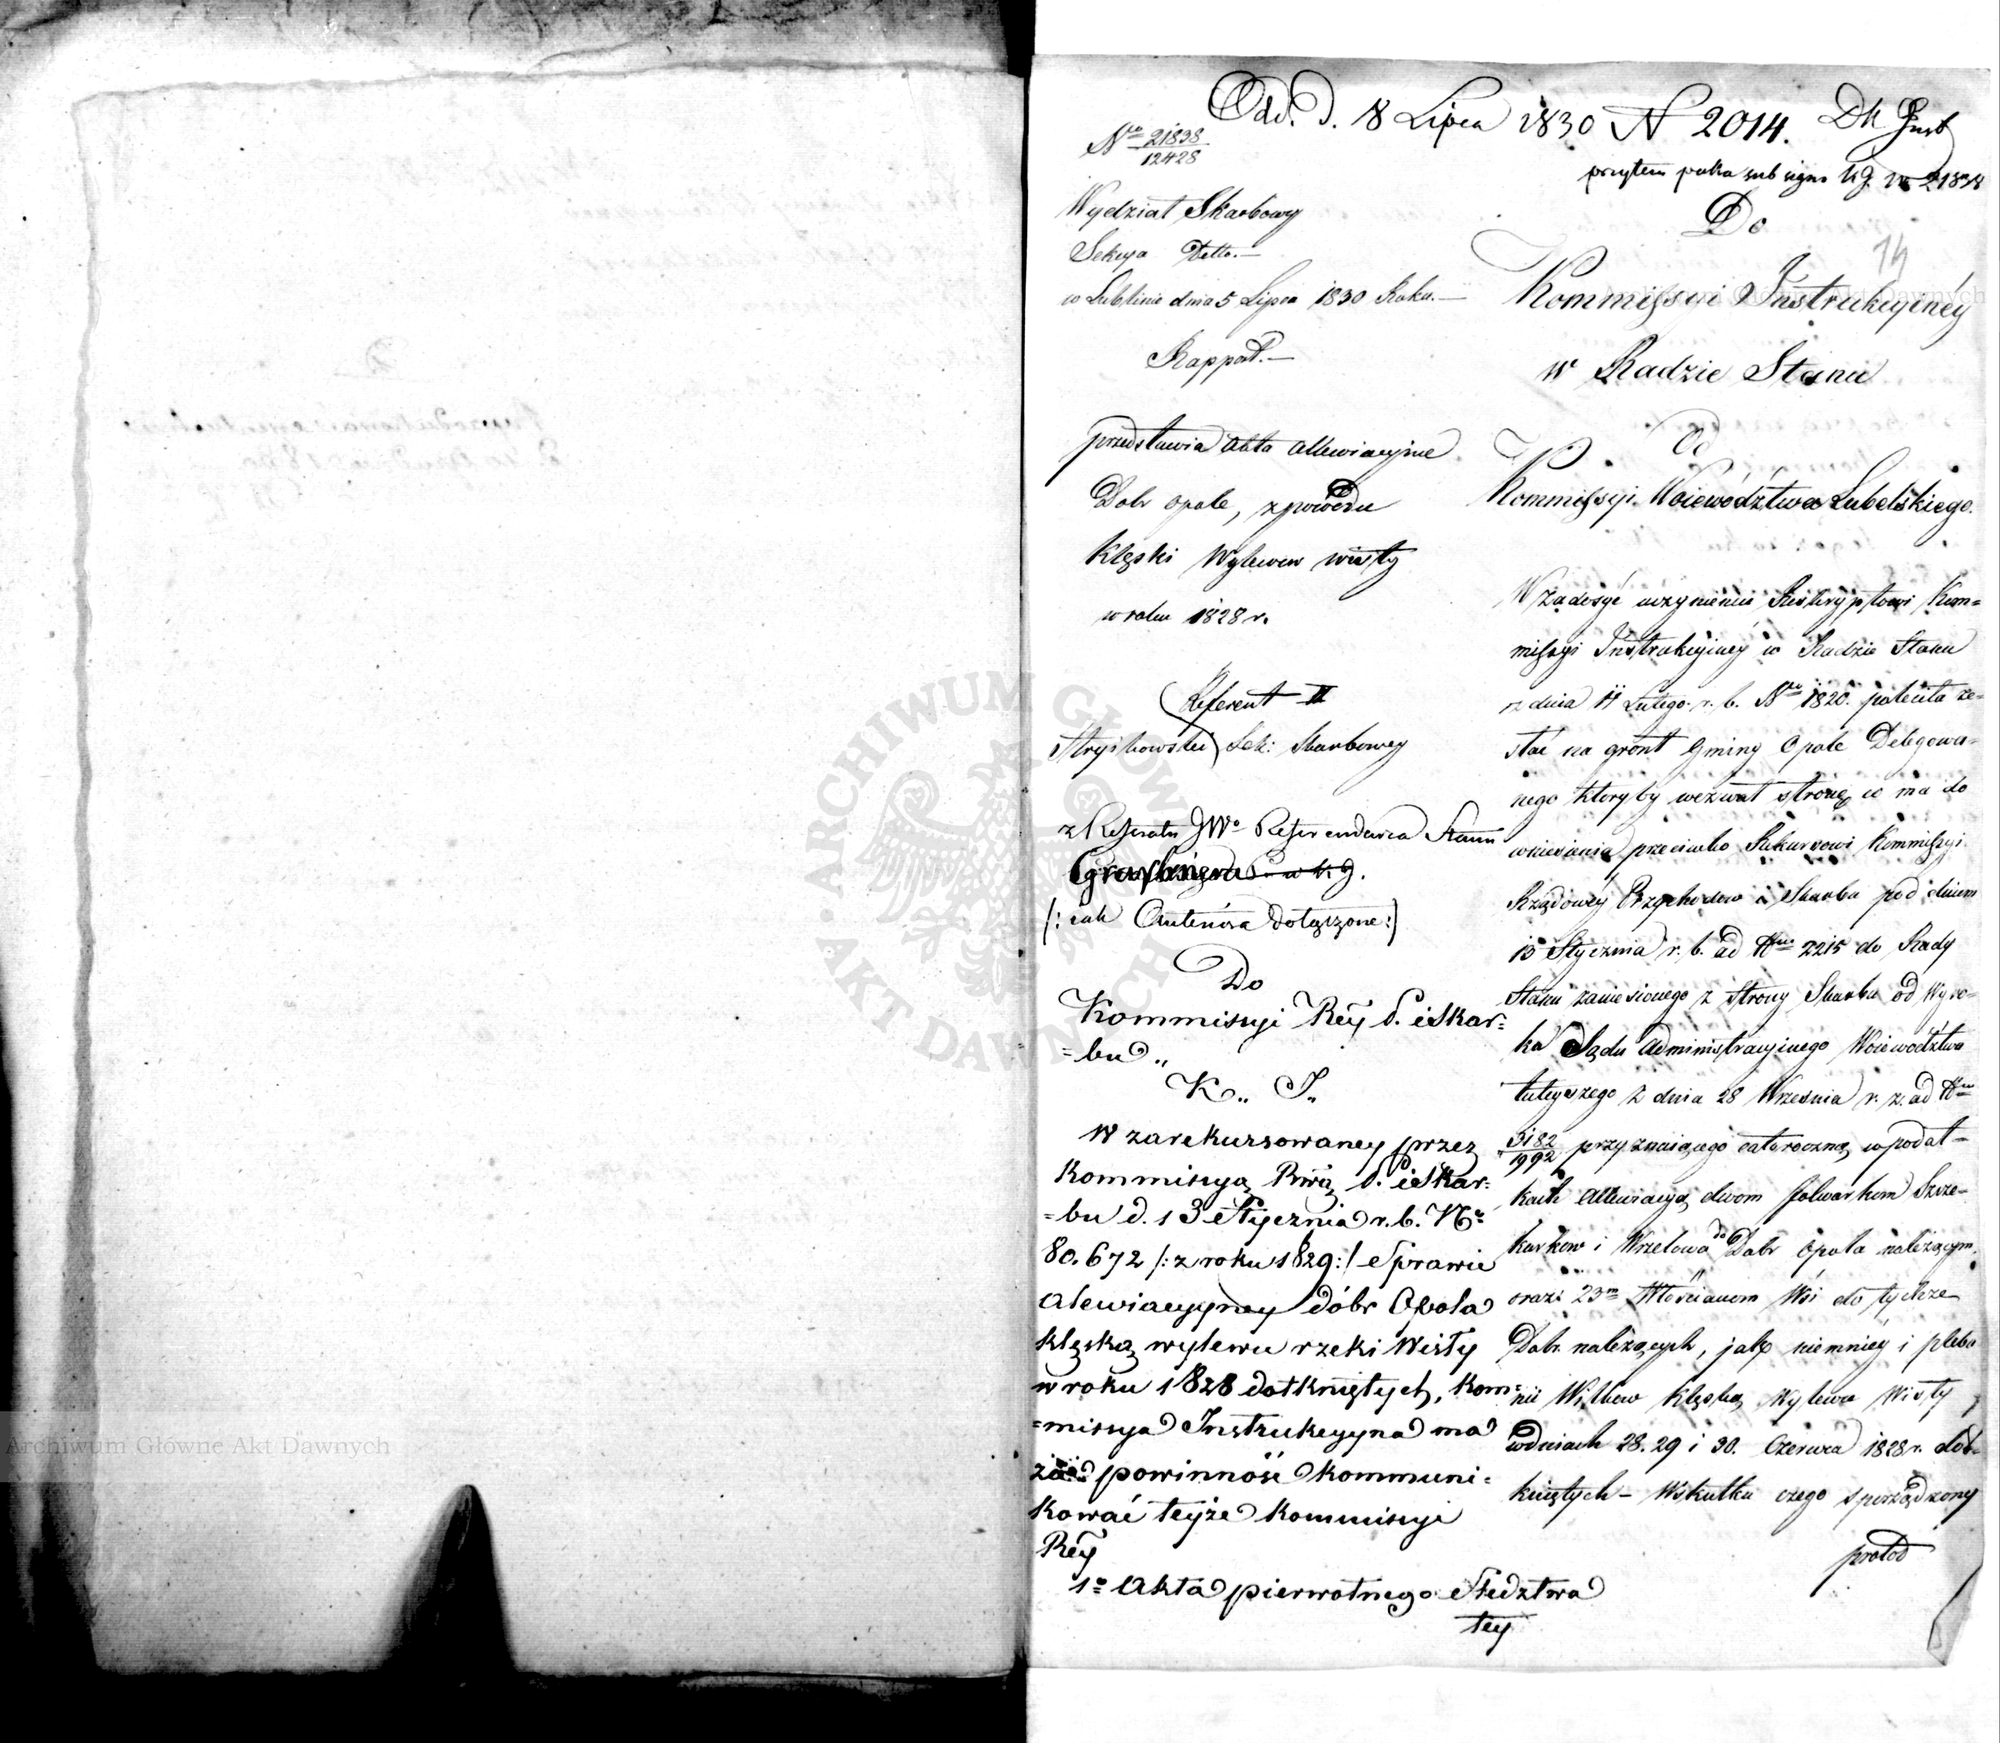 Odd. D. 8 Lipca 1830 N 2014.
No 21838
12428
przytem paka sub signo
Wydział Skarbowy
Sekcya Detto.—
w Lublinie dnia 5 Lipca 1830 Roku.—
Rapport.—
przedstawia akta allewiacyjne
Dobr Opole, z powodu
Klęski Wylewu Wisły
w roku 1828 r.
Referent II
Stryikowski Sek: Skarbowey
z Referatu JWo Referendarza Stanu
(: iak Anteriora dołączone :)
Do
Kommissyi Rey P. i Skar=
=bu„
K„ I„
W zarekursowaney przez
Kommissyą Rwą P. i Skar=
=bu d. 13 Stycznia r. b. No
80.672 /: z roku 1829 :/ Sprawie
alewiacyyney dóbr Opola
klęską wylewu rzeki Wisły
w roku 1828 dotkniętych, Kom=
=missya Instrukcyyna ma
powinność kommuni=
kować teyże Kommissyi
Rey
1o Akta pierwotnego Sledztwa
tey
Do
14
Kommissyi Instrukcyiney
w Radzie Stanu
Od
Kommissyi Woiewództwa Lubelskiego.
W zadosyć uczynieniu Reskryptowi Kom=
missyi Instrukcyiney w Radzie Stanu
z dnia 11 Lutego r. b. No 1820. poleciła ze=
słać na gront Gminy Opole Delegowa=
nego któryby wezwał stronę co ma do
wniesienia przeciwko Rekursowi Kommissyi
Rządowey Przychodow i Skarbu pod dniem
13 Stycznia r. b. ad Num 2215 do Rady
Stanu zaniesionego z strony Skarbu od Wyro=
ku Sądu Administracyinego Woiewództwa
tuteyszego z dnia 28 Września r. z. ad Num
3182
1992 przyznaiącego całoroczną w podat=
kach allewiacyą dwom folwarkom Szcze=
karkow i Wrzelowa do Dobr Opola należącym
oraz 23m Włościanom Wsi do tychże
Dobr należących, jako niemniey i pleba
nii Wilkow klęską Wylewu Wisły
w dniach 28. 29 i 30. Czerwca 1828 r. dot=
kniętych — Wskutku czego sporządzony
protoo